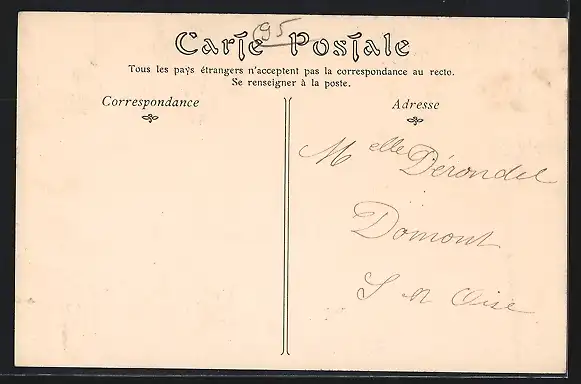 95
Carte Postale
Tous les pays étrangers n'acceptent pas la correspondance au recto.
Se renseigner à la poste.
Correspondance
Adresse
Melle Dérondel
Domont
S et Oise